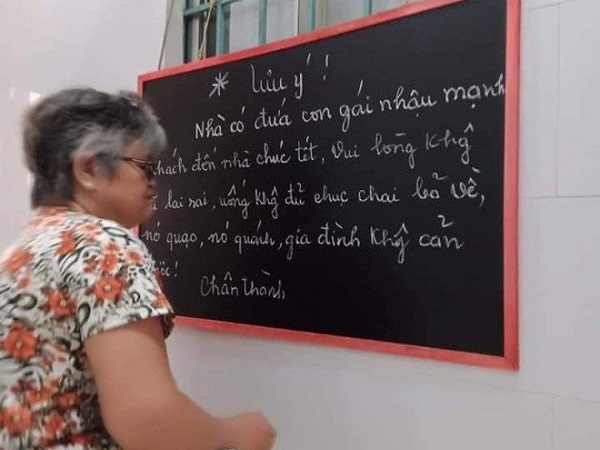 * Lưu ý !
Nhà có đứa con gái nhậu mạnh
khách đến nhà chúc tết, vui lòng khô
lai rai, uống khô đủ chục chai bỏ về,
nó quạo, nó quánh, gia đình khô cản
Chân thành